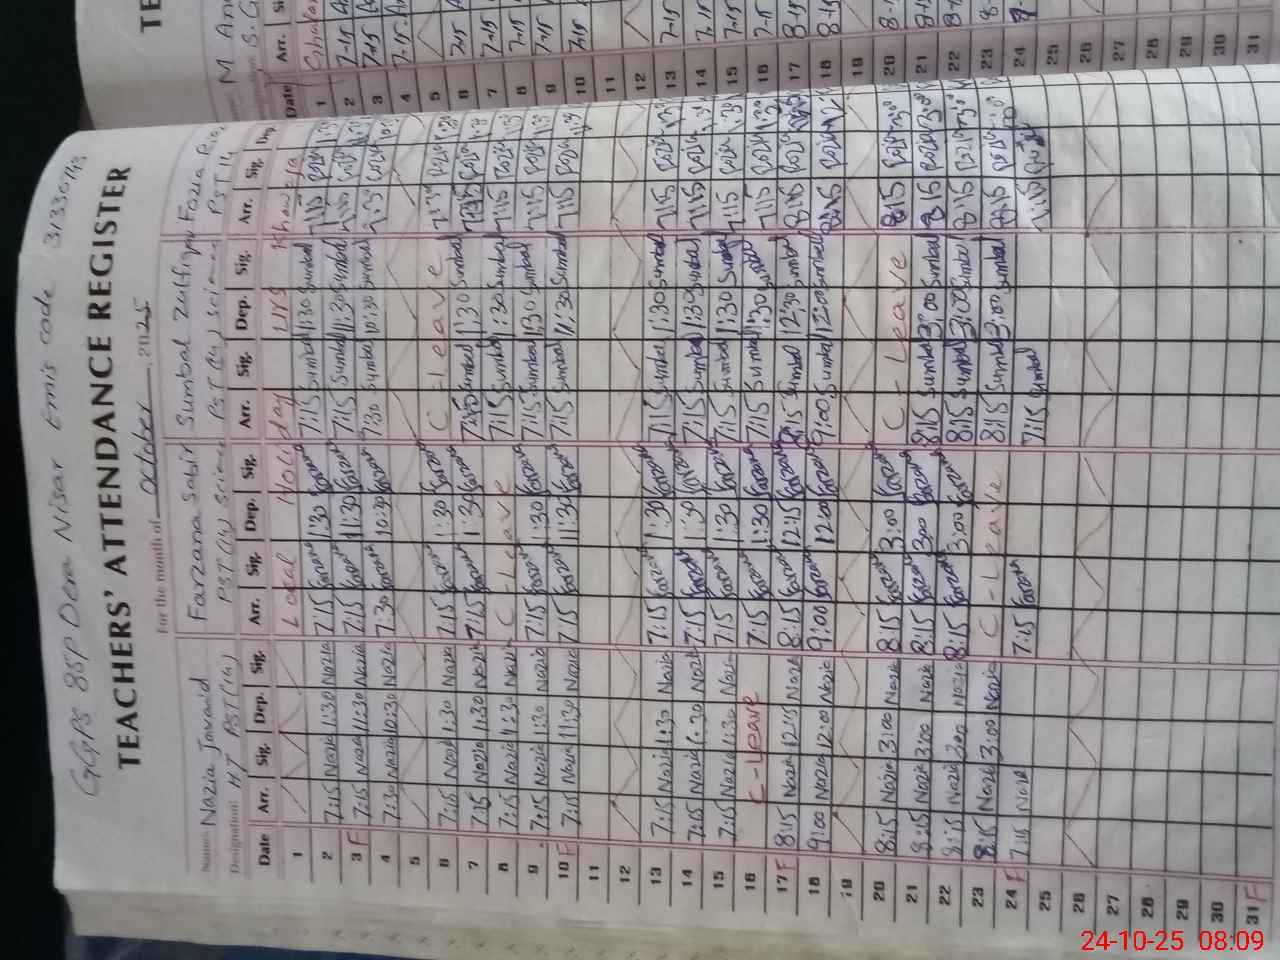 GGPS 85P Dera Nisar Emis code 31330743
TEACHERS' ATTENDANCE REGISTER
For the month of October, 2025
Name: Nazia Javaid Farzana Sabir Sumbal Zulfiqar Fozia
Designation: HT PST(14) PST(14) Science PST(14) Science PST 14
Date Arr. Sig. Dep. Sig. Arr. Sig. Dep. Sig. Arr. Sig. Dep. Sig. Arr. Sig. Dep.
1 Local Holiday
2 7:15 Nazia 1:30 Nazia 7:15 Farzana 1:30 Farzana 7:15 Sumbal 1:30 Sumbal 7:15 Fozia
3 F 7:15 Nazia 11:30 Nazia 7:15 Farzana 11:30 Farzana 7:15 Sumbal 11:30 Sumbal 7:15 Fozia
4 7:30 Nazia 10:30 Nazia 7:30 Farzana 10:30 Farzana 7:30 Sumbal 10:30 Sumbal 7:30 Fozia
5
6 7:15 Nazia 1:30 Nazia 7:15 Farzana 1:30 Farzana C-Leave 7:30 Fozia 1:30
7 7:15 Nazia 1:30 Nazia 7:15 Farzana 1:30 Farzana Sumbal 1:30 Sumbal 7:15 Fozia
8 7:15 Nazia 1:30 Nazia C-Leave 7:15 Sumbal 1:30 Sumbal 7:15 Fozia
9 7:15 Nazia 1:30 Nazia 7:15 Farzana 1:30 Farzana 7:15 Sumbal 1:30 Sumbal 7:15 Fozia
10 F 7:15 Nazia 11:30 Nazia 7:15 Farzana 11:30 Farzana 7:15 Sumbal 11:30 Sumbal 7:15 Fozia
11
12
13 7:15 Nazia 1:30 Nazia 7:15 Farzana 1:30 Farzana 7:15 Sumbal 1:30 Sumbal 7:15 Fozia 1:30
14 7:15 Nazia 1:30 Nazia 7:15 Farzana 1:30 Farzana 7:15 Sumbal 1:30 Sumbal 7:15 Fozia 1:30
15 7:15 Nazia 1:30 Nazia 7:15 Farzana 1:30 Farzana 7:15 Sumbal 1:30 Sumbal 7:15 Fozia 1:30
16 C-Leave 7:15 Farzana 1:30 Farzana 7:15 Sumbal 1:30 Sumbal 7:15 Fozia 1:30
17 F 8:15 Nazia 12:15 Nazia 8:15 Farzana 12:15 Farzana 8:15 Sumbal 12:30 Sumbal 8:15 Fozia
18 9:00 Nazia 12:00 Nazia 9:00 Farzana 12:00 Farzana 9:00 Sumbal 12:00 Sumbal Fozia
19
20 8:15 Nazia 3:00 Nazia 8:15 Farzana 3:00 Farzana C-Leave 8:15 Fozia 3:00
21 8:15 Nazia 3:00 Nazia 8:15 Farzana 3:00 Farzana 8:15 Sumbal 3:00 Sumbal 8:15 Fozia 3:00
22 8:15 Nazia 3:00 Nazia 8:15 Farzana 3:00 Farzana 8:15 Sumbal 3:00 Sumbal 8:15 Fozia 3:00
23 8:15 Nazia 3:00 Nazia C-Leave 8:15 Sumbal 3:00 Sumbal 8:15 Fozia
24 F 7:15 Nazia 7:15 Farzana 7:15 Sumbal 7:15
25
26
27
28
29
30
31 F
TE
M
Date Arr.
1
2 7-15
3 7-15
4 7-15
5
6 7-15
7 7-15
8 7-15
9 7-15
10 7-15
11
12
13 7-15
14 7-15
15 7-15
16 7-15
17 8-15
18 8-15
19
20
21
22
23
24
25
26
27
28
29
30
31
24-10-25 08:09